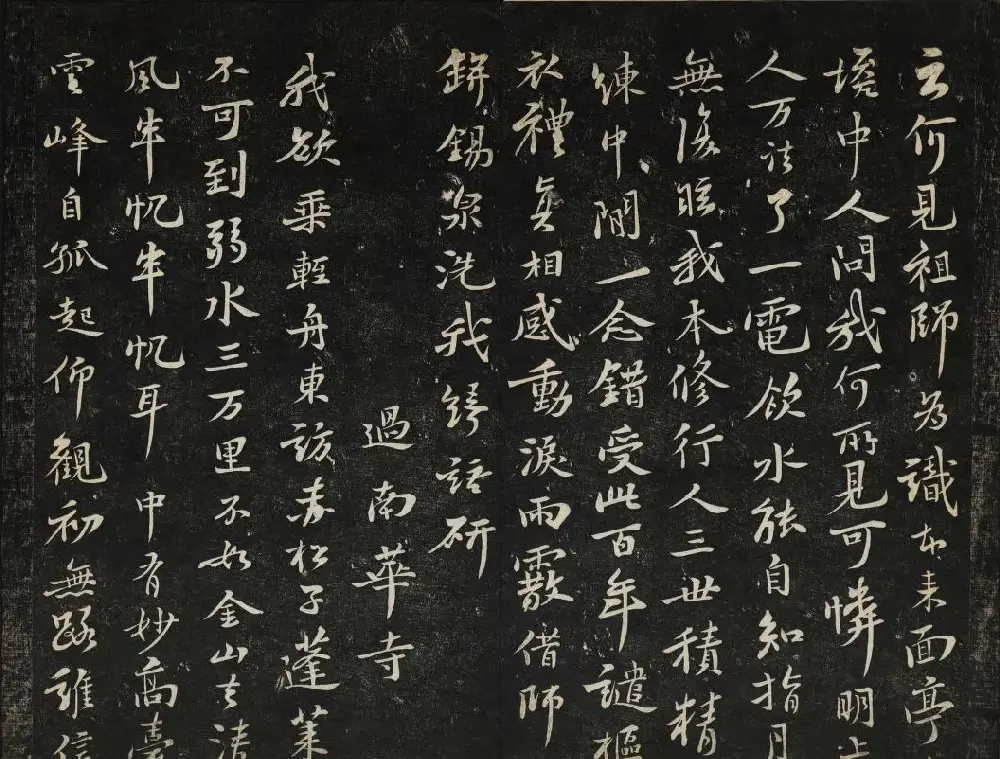 云何見祖師為識本来面亭
塔中人問我何所見可憐明上
人万法了一電飲水能自知指月
無復眩我本修行人三世積精
練中間一念錯受此百年譴摳
衣禮真相感動淚雨霰借師
鉼錫泉洗我綺語研
過南華寺
我欲乗輕舟東訪赤松子蓬莱
不可到弱水三万里不如金山去清
風半帆半帆耳 中有妙高臺
雲峰自孤起仰觀初無路誰信